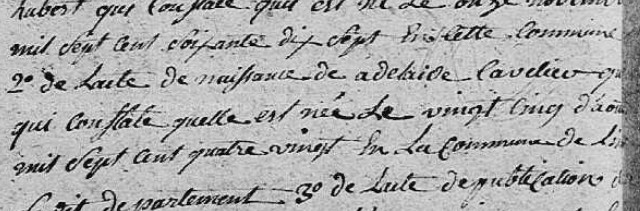 hubert qui constate quil est né le onze novem
mil sept cent soixante dix sept En cette Commune
2° de Lacte de naissance de adelaide Cavelier
qui constate quelle est née Le vingt cinq d'aou
mil Sept Cent quatre vingt En La Commune de
departement 3° de Lacte de publication